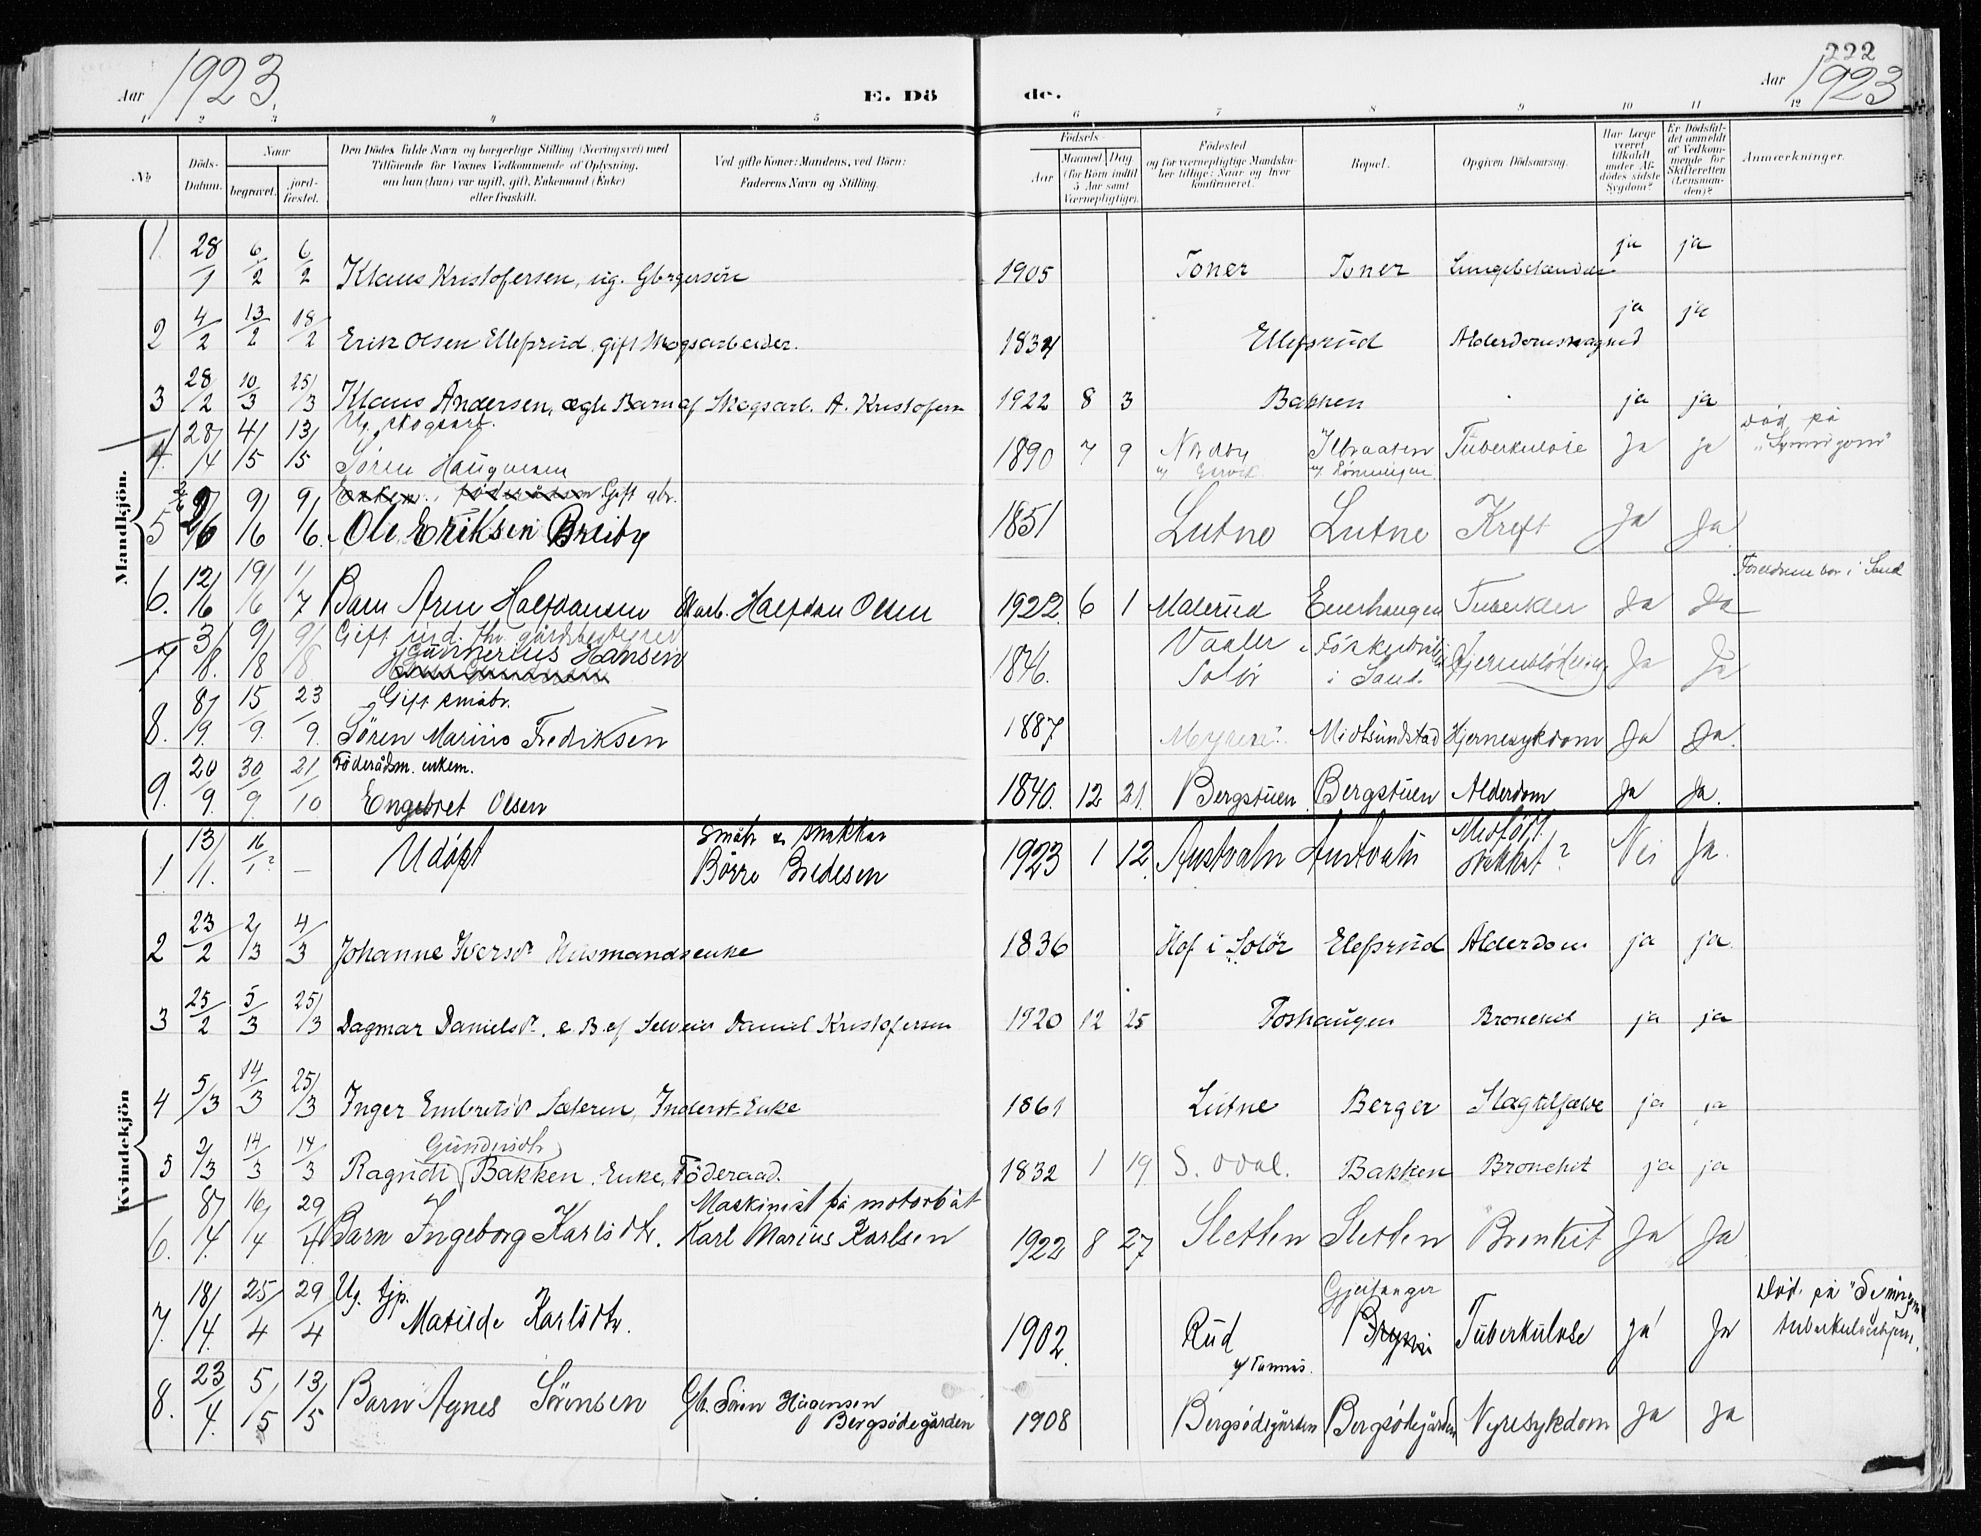 222
Aar 1923. E. Dö de. Aar 1923
1 2 3 4 5 6 7 8 9 10 11 12
No
Döds-Datum.
Naar
begravet.
jord-fæstet.
Den Dödes fulde Navn og borgerlige Stilling (Næringsvei) med
Tilföiende for Voxnes Vedkommende af Oplysning,
om han (hun) var ugift, gift, Enkemand (Enke)
eller fraskilt.
Ved gifte Koner: Mandens, ved Börn:
Faderens Navn og Stilling.
Födsels-
Aar
Maaned Dag
(for Børn indtil
5 Aar samt
Værnepligtige).
Födested
og for værnepligtige Mandska-
ber tillige: Naar og hvor
konfirmeret.
Bopæl.
Opgiven Dödsaarsag.
Har Læge
været
tilkaldt
under Af-
dödes sidste
Sygdom?
Er Dödsfal-
det anmeldt
af Vedkom-
mende for
Skifteretten
(Lensman-
den)?
Anmærkninger.
Mandkjön.
1. 28/1 6/2 6/2 Klaus Kristofersen, ug. Gbrgersön 1905 Toner Toner ja ja
2 4/2 13/2 18/2 Erik Olsen Ellefsrud, gift Skogsarbeider. 1834 Ellefsrud ja ja
3 28/2 10/3 25/3 Klaus Andersen, ægte Barn af Skogsarb. A. Kristofersen 1922 8 3 Bakken ja ja
Ug. skogsarb.
4. 28/4 4/5 13/5 Sören Haugersen 1890 7 9 Nordby Tuberkulose Ja Ja Död på
Gift gbr.
5 9/6 9/6 Ole Eriksen Breiby 1851 Lutne Lutne Kreft Ja Ja.
6. 12/6 19/6 1/7 Barn Arne Halfdansen Skarb. Halfdan Olsen 1922. 6 1 Malerud Tuberkler Ja Ja Foreldrene bor i Sand
Gift ind. fhv. gårdbestyrer
7 3/8. 9/8 9/8. Gunnerius Hansen 1846. Vaaler i Solör i Sand. Ja Ja
Gift småbr.
8. 8/9. 15/9. 23/9. Sören Marius Fredriksen 1887 Myrene. Midtsundstad Hjernesykdom Ja Ja.
Föderådsm. enkem.
9. 20/9. 30/9. 21/10 Engebret Olsen 1840. 12 21. Bergstuen Bergstuen Alderdom Ja Ja.
Kvindekjön
1. 13/1. 16/1? — Udöpt Småbr & snekker
Börre Bredesen 1923 1 12. Austvatn Austvatn Medfödt svakhet? Nei Ja.
2 23/2 2/3 4/3 Johanne Iversdt. Husmandsenke 1836 Hof i Solör Elefsrud Alderdom ja ja.
3 25/2 5/3 25/3 Dagmar Danielsdt. e. B. af Selveier Daniel Kristofersen 1920 12 25 Foshaugen Bronchit ja ja
4 5/3 14/3 25/3 Inger Embretsdt Sæteren, Inderst Enke 1861 Lutne Berger Slagtilfælde ja ja
5 2/3 14/3 14/3 Ragndi Gundersdtr Bakken, Enke, Föderaad. 1832 1 19 S. Odal. Bakken Bronchit ja ja
6. 8/4. 16/4 29/4. Barn Ingeborg Karlsdtr. Maskinist på motorbåt
Karl Marius Karlsen 1922 8 27 Sletten Sletten Bronkit Ja Ja
7. 18/4. 25/4 29/4 Ug. tjp.
Matilde Karlsdtr. 1902. Rud Gjeitanger Tuberkulose Ja Ja Död. på
8. 23/4. 5/5 13/5 Barn Agnes Sörensen Gb. Sören Hagensen
Bergsödegården 1908 Bergsödegården Bergsödegården Nyresykdom Ja Ja